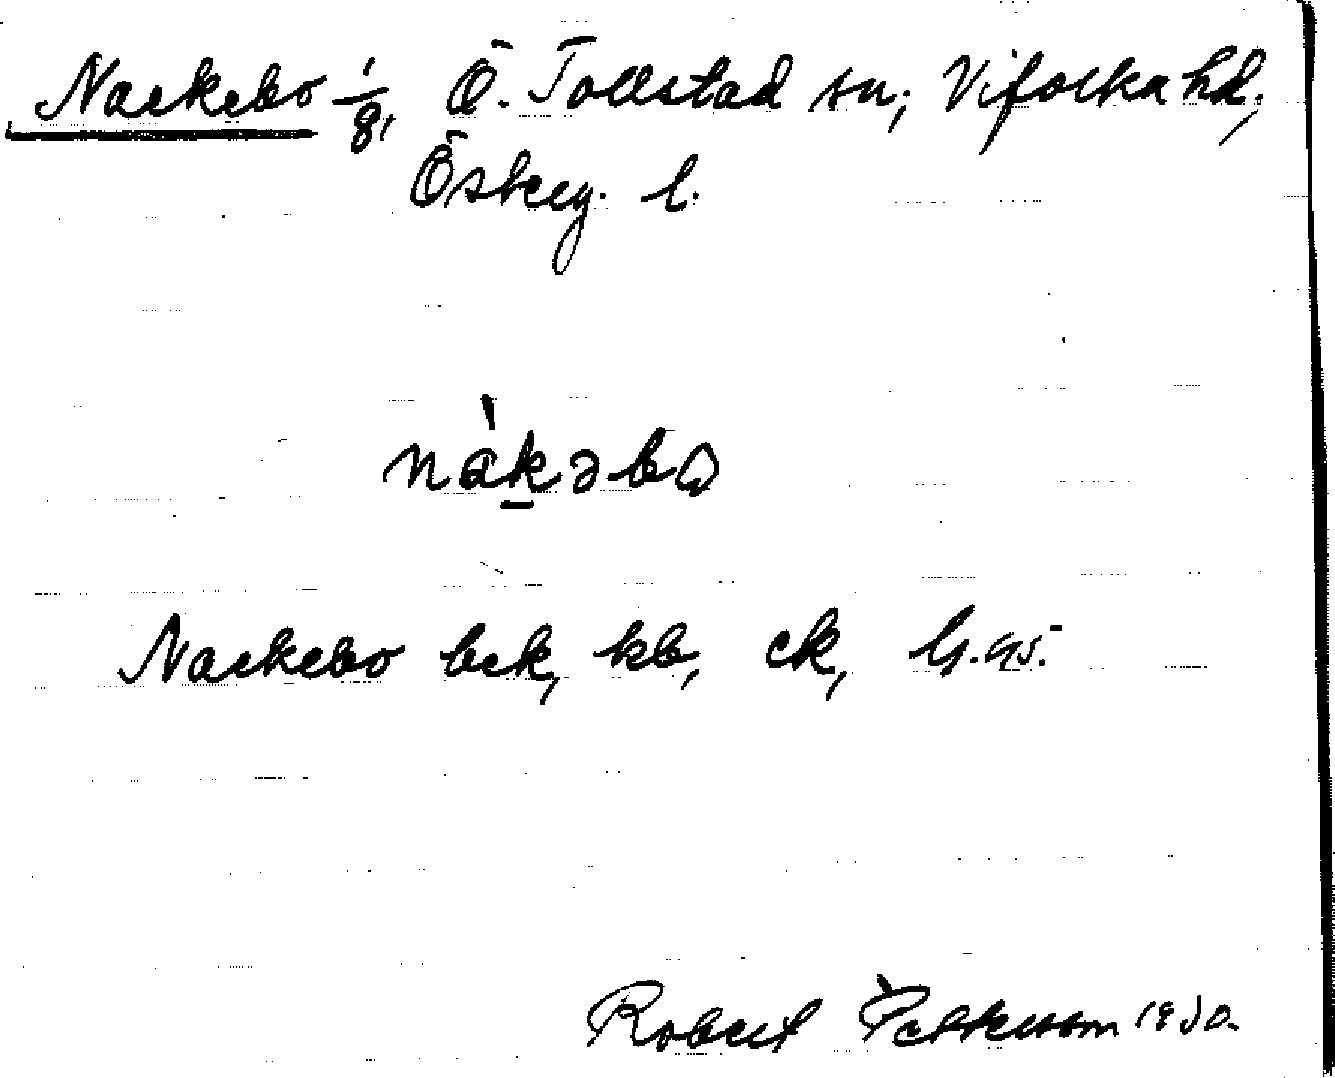 Nackebo 1/8, Ö. Tollstad sn, Vifolka hd,
Östeg. l.
nàkəbω
Nackebo bck, kb, ck,
Robert Pettersson 1930.